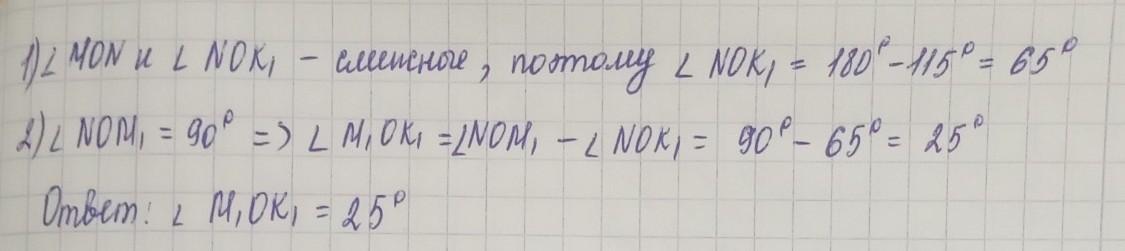 1) ∠ MON и ∠ NOK₁ - смежные, поэтому ∠ NOK₁ = 180° - 115° = 65°
2) ∠ NOM₁ = 90° => ∠ M₁OK₁ = ∠NOM₁ - ∠ NOK₁ = 90° - 65° = 25°
Ответ: ∠ M₁OK₁ = 25°